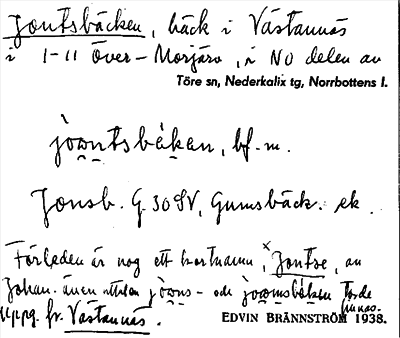 Jontsbäcken, bäck i Västannäs
i 1-11 Över-Morjärv, i NO delen av
Töre sn, Nederkalix tg, Norrbottens l.
jòω̯ntsbä̀kan, bf. m.
Jonsb. G. 30 SV, Gumsbäck. ek.
Förleden är nog ett kortnamn, ˣJontse, av
Johan. även uttalen jòω̯ns- och jòω̯msbä̀kan torde finnas.
Uppg. fr. Västannäs.
EDVIN BRÄNNSTRÖM 1938.